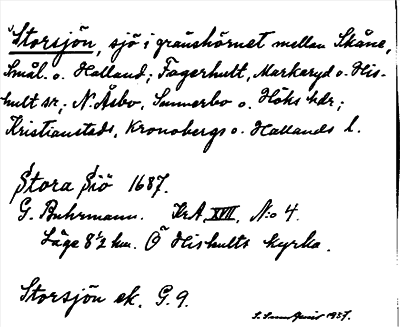 Storsjön, sjö i gränshörnet mellan Skåne,
Smål. o. Halland; Fagerhult, Markaryd o. His-
hult sr; N. Åsbo, Sunnerbo o. Höks hdr;
Kristianstads, Kronobergs o. Hallands l.
Stora Siö 1687.
G. Buhrmann. KrA, XVII, N:o 4.
Läge 8½ km. Ö Hishults kyrka.
Storsjön ek. G. 9.
1937.